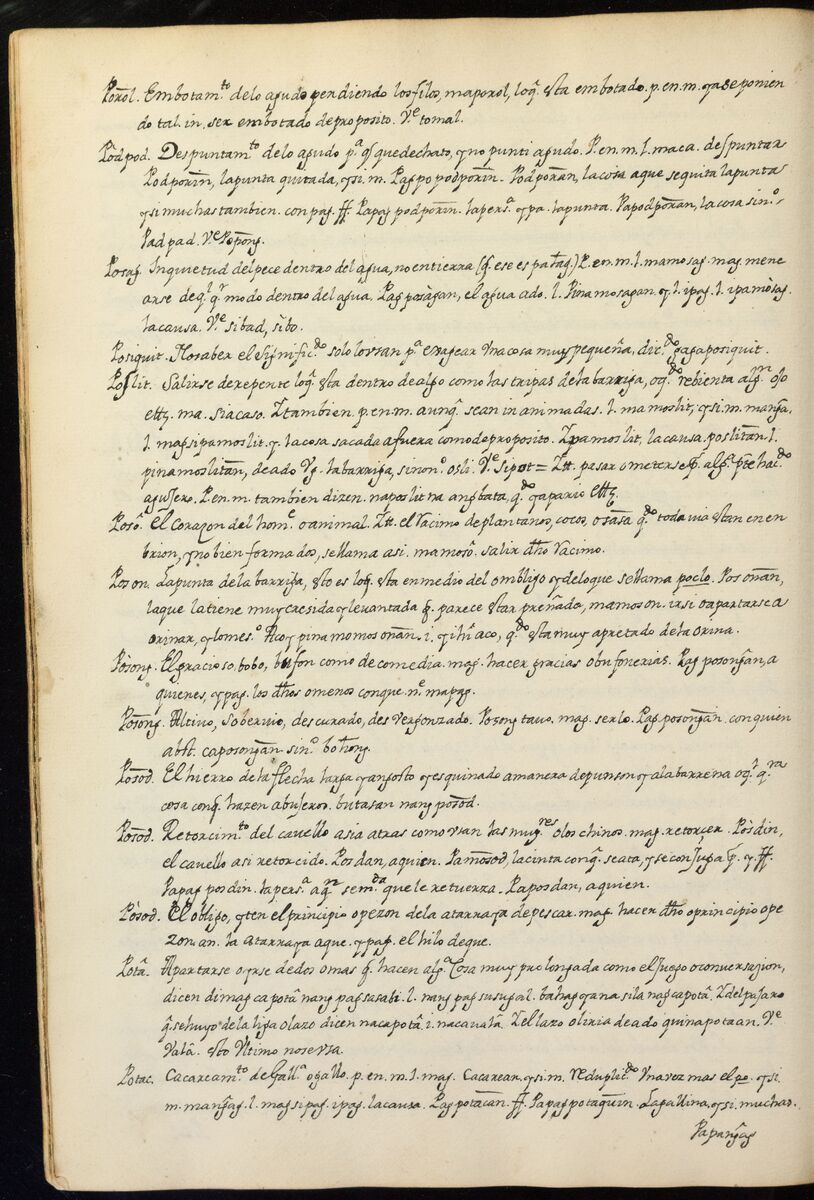 Porol. Embotam.to delo agudo perdiendo los filos, maporol, loq̃ esta embotado. p. en. m. yrse ponien
do tal. in, ser embotado de proposito. V.e tomal.
Podpod. Despuntam.to delo agudo p.a q̃ quede chato, y no punti agudo. P. en. m. l. maca. despuntar
Podporin, la punta quitada, y si. m. Pagpo podporin. Podporan, la cosa aque se quita la punta
y si muchas tambien. con pag. ff. Papag podporin. la pers.a y pa. la punta. Papodporan, la cosa sin.o
Padpad. V.e Popong.
Posag. Inquietud del pece dentro del agua, no en tierra (q̃ ese es patag.) P. en. m. l. mamosag. mag. mene
arse de q.l q.r modo dentro del agua. Pag posagan, el agua ado. l. Pinamosagan. y l. ipag. l. ipamosag.
la causa. V.e sibad, sibo.
Posiquit. No saber el signific.do solo lo usan p.a exagear una cosa muy pequeña, dic.do gagaposiquit.
Poslit. Salirse de repente loq̃ esta dentro de algo como las tripas dela barriga, o q.do rebienta alg.n ojo
ett.z ma. si acaso. Z tambien. p. en. m. aunq̃ sean inanimadas. l. mamoslit, y si. m. manga.
l. magsipamoslit. y la cosa sacada afuera como de proposito. Zpamoslit, la causa, poslitan. l.
pinamoslitan, de ado Vg. la barriga, sinon.o osli. V.e sipot = Ztt. pasar o meterse p.r alg.a p.te hac.do
agujero. P. en. m. tambien dizen. naposlit na ang bata, q.do ya pario ett.z
Poso. El Corazon del hom.e o animal. Ztt. el Racimo de plantanos, cocos, o sãsa q.do toda via estan en en
brion, y no bien formados, se llama asi. mamoso. salir dho Racimo.
Poson. La punta dela barriga, esto es loq̃ esta en medio del ombligo y delo que se llama poclo. Posonan,
la que la tiene muy cresida y levantada q̃ parece estar preñada, mamoson. irsi o apartarse a
orinar, y lo mes.o Aco y pinamomosonan. i. y ihi aco, q.do esta muy apretado dela orina.
Posong. El gracioso, bobo, bufon como de comedia. mag. hacer gracias o bufonerias. Pag posongan, a
quienes, y pag. los dhos o menos con que. n.e mapag.
Posong. Altivo, soberuio, descarado, desvergonzado. Posong tauo, mag. serlo. Pag posongan con quien
abst. caposongan sin.o bohong.
Posod. El hierro dela flecha larga y angosto y esquinado a manera de punson y ala barrena o q.l q.ra
cosa conq̃ hazen abujeros. butasan nang posod.
Posod. Retorcim.to del cauello asia atras como vsan las mug.res o los chinos. mag. retorçer. Posdin,
el cauello asi retorcido. Posdan, aquien. Pamosod, la cinta conq̃ se ata, y se conjuga p.r y ff.
Papag posdin. la pers.a aq.n sem.da que le retuerza. Paposdan, aquien.
Posod. El obligo, y ten el principio o pezon dela atarraya de pescar. mag. hacer dho o principio o pe
zon. an. la atarraya aque. y pag. el hilo de que.
Pota. Apartarse o yrse de dos o mas q̃ hacen alg.a Cosa muy prolongada como el juego o conversazion,
dicen di magcapota nang pagsasabi. l. nang pagsusugal. bahagya na sila nagcapota. Z del pajaro
q̃ se huyo de la liga o lazo dicen nacapota. i. nacauala. Z el lazo o liria de ado quinapotaan. V.e
Vala. esto Vltimo no se vsa.
Potac. Cacaream.to de Gall.a o gallo. p. en. m. l. mag. Cacarean. y si. m. reduplic.do vna vez mas el po. y si
m. mangag. l. magsipag. ipag. la causa. Pag potacan. ff. Papagpotaquin. La gallina, y si. muchas.
Papangag